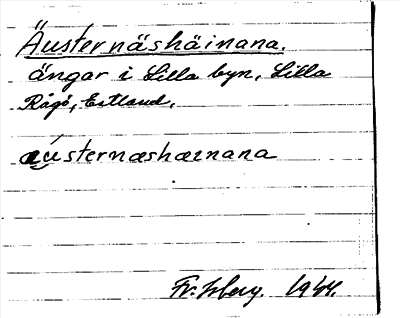 Äusternäshäinana.
ängar i Lilla byn, Lilla
Rågö, Estland.
æústernæshæɪnana
Fr. Isberg. 1944.